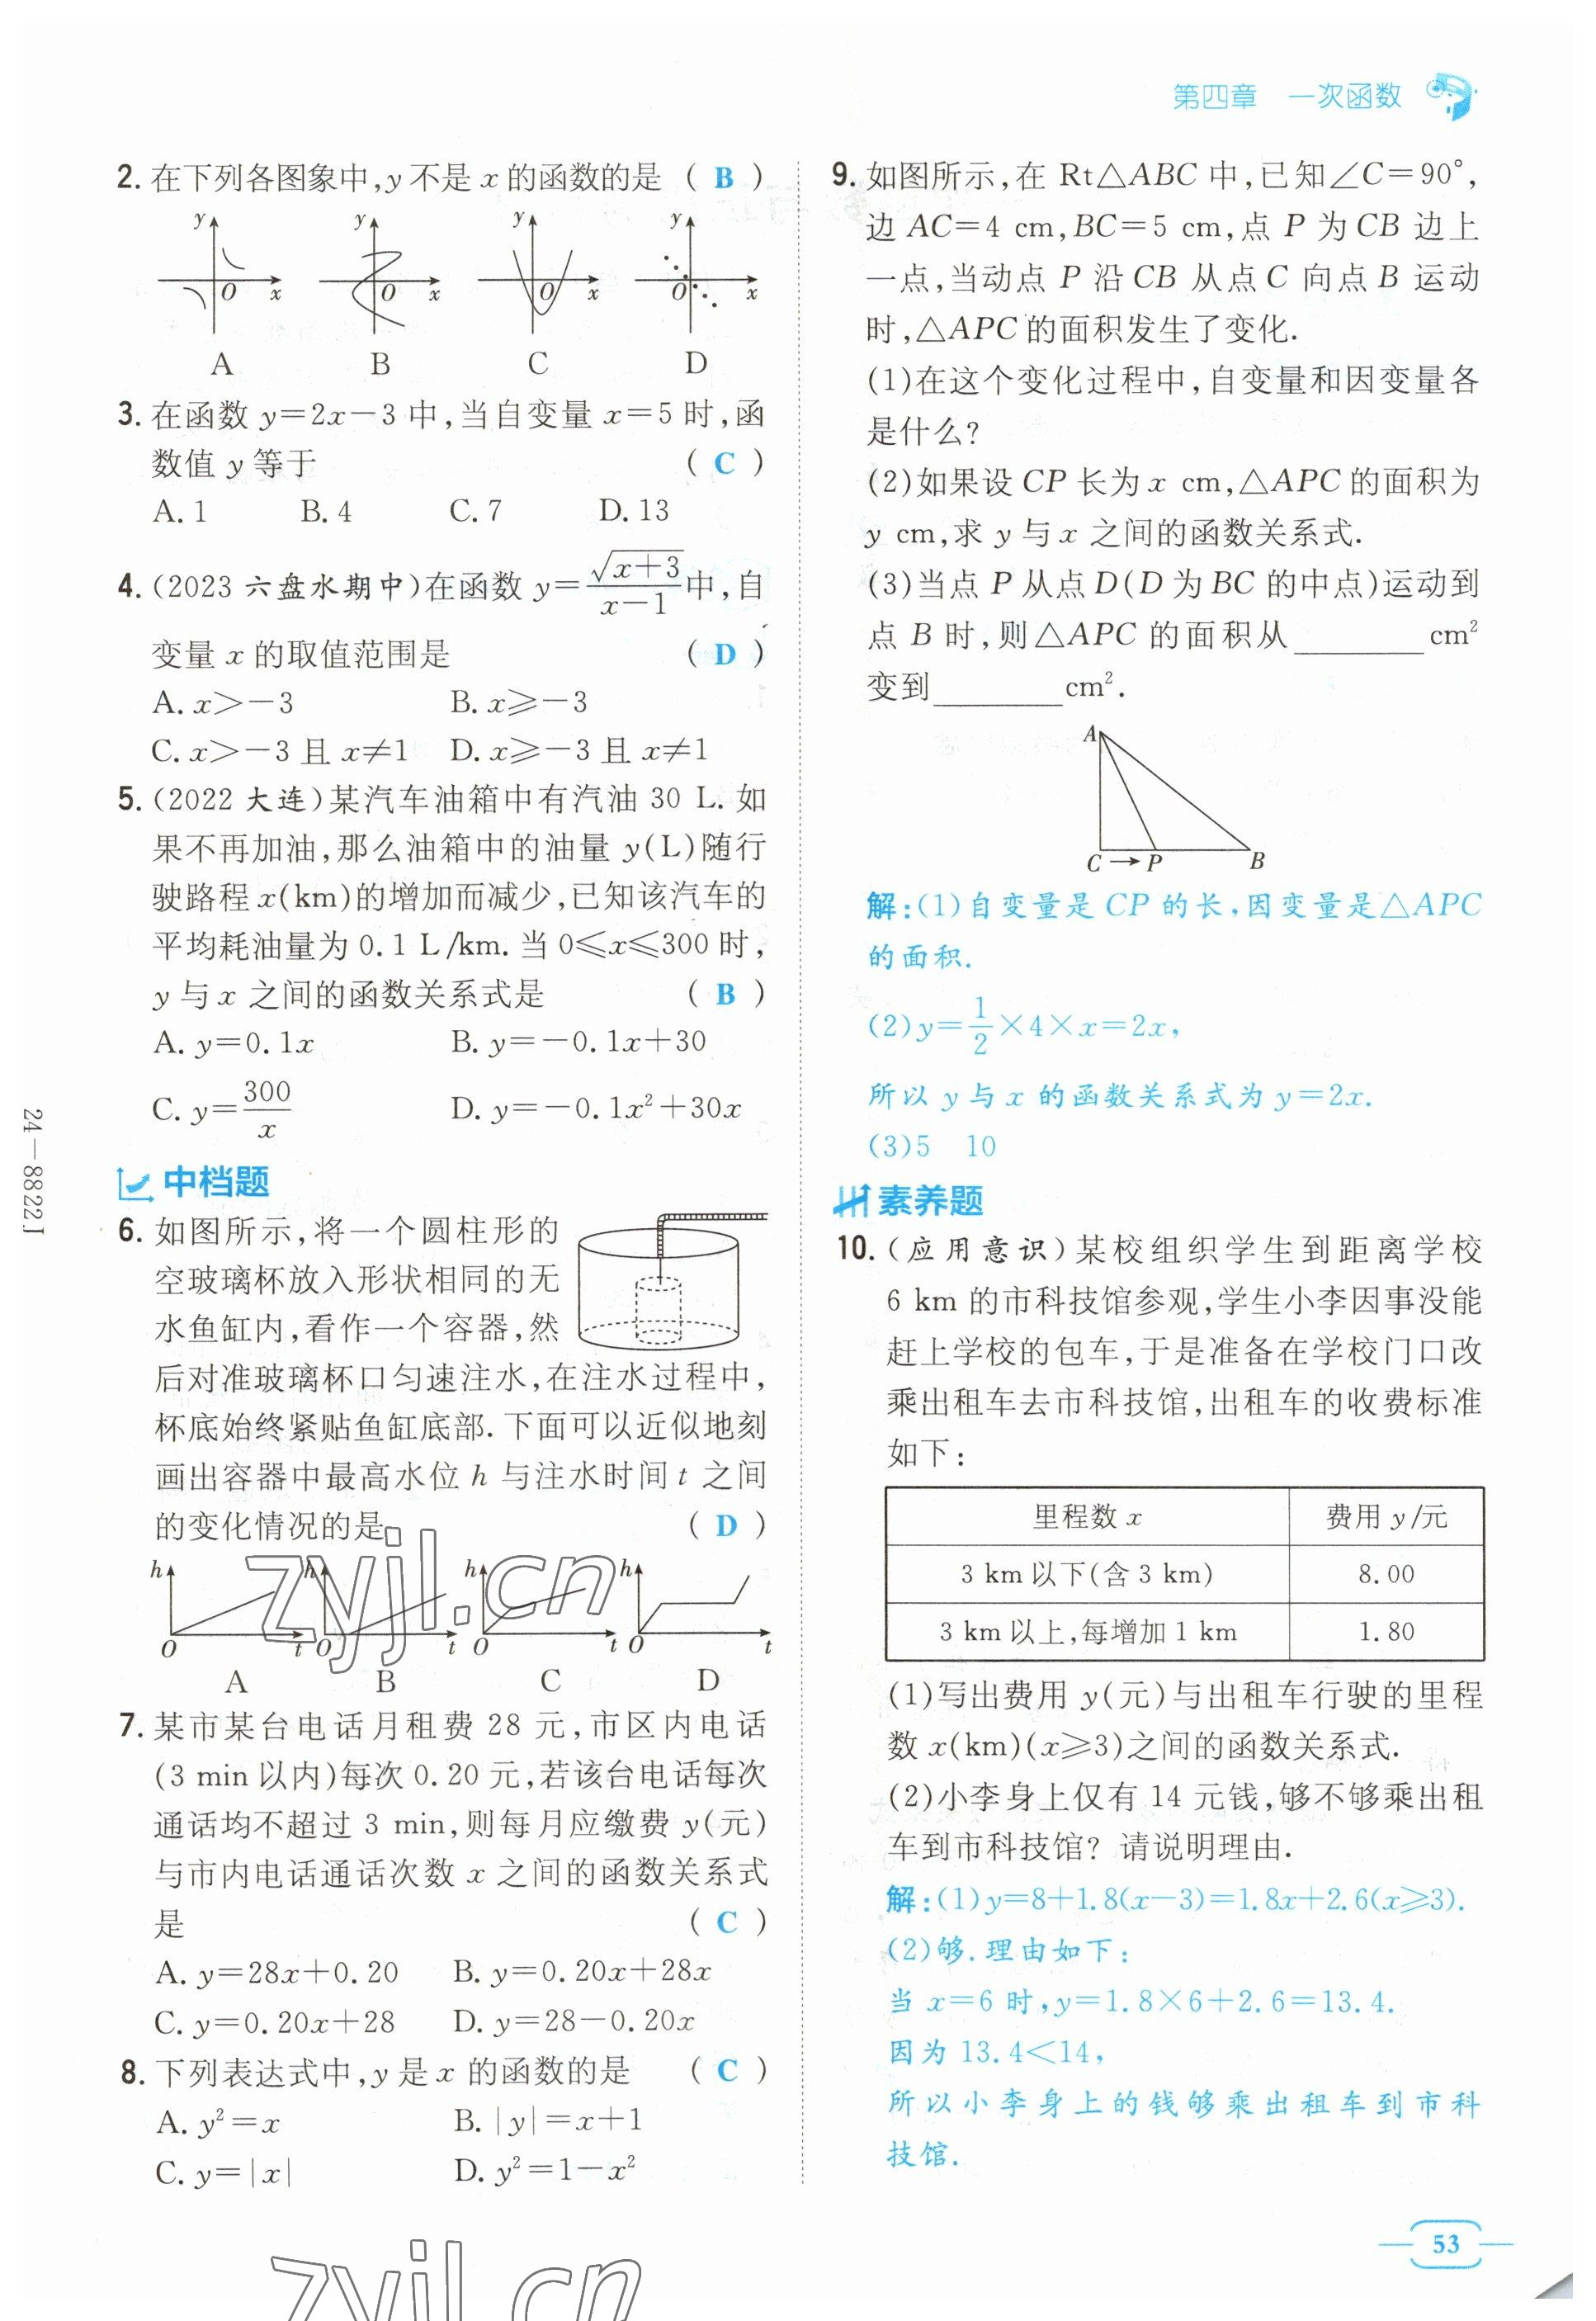 第四章 一次函数
2. 在下列各图象中,y 不是 x 的函数的是 ( B )
y y y y
O x O x O x O x
A B C D
3. 在函数 y=2x-3 中,当自变量 x=5 时,函
数值 y 等于 ( C )
A. 1 B. 4 C. 7 D. 13
4. (2023 六盘水期中)在函数 y=\frac{\sqrt{x+3}}{x-1}中,自
变量 x 的取值范围是 ( D )
A. x>-3 B. x⩾-3
C. x>-3 且 x≠1 D. x⩾-3 且 x≠1
5. (2022 大连)某汽车油箱中有汽油 30 L. 如
果不再加油,那么油箱中的油量 y(L)随行
驶路程 x(km)的增加而减少,已知该汽车的
平均耗油量为 0. 1 L/km. 当 0⩽x⩽300 时,
y 与 x 之间的函数关系式是 ( B )
A. y=0. 1x B. y=-0. 1x+30
C. y=\frac{300}{x} D. y=-0. 1x²+30x
中档题
6. 如图所示,将一个圆柱形的
空玻璃杯放入形状相同的无
水鱼缸内,看作一个容器,然
后对准玻璃杯口匀速注水,在注水过程中,
杯底始终紧贴鱼缸底部. 下面可以近似地刻
画出容器中最高水位 h 与注水时间 t 之间
的变化情况的是 ( D )
h h h h
O t O t O t O t
A B C D
zyjl.cn
7. 某市某台电话月租费 28 元,市区内电话
(3 min 以内)每次 0. 20 元,若该台电话每次
通话均不超过 3 min,则每月应缴费 y(元)
与市内电话通话次数 x 之间的函数关系式
是 ( C )
A. y=28x+0. 20 B. y=0. 20x+28x
C. y=0. 20x+28 D. y=28-0. 20x
8. 下列表达式中,y 是 x 的函数的是 ( C )
A. y²=x B. |y|=x+1
C. y=|x| D. y²=1-x²
24—8822J
9. 如图所示,在 Rt△ABC 中,已知∠C=90°,
边 AC=4 cm,BC=5 cm,点 P 为 CB 边上
一点,当动点 P 沿 CB 从点 C 向点 B 运动
时,△APC 的面积发生了变化.
(1)在这个变化过程中,自变量和因变量各
是什么?
(2)如果设 CP 长为 x cm,△APC 的面积为
y cm,求 y 与 x 之间的函数关系式.
(3)当点 P 从点 D(D 为 BC 的中点)运动到
点 B 时,则△APC 的面积从________ cm²
变到________cm².
A
C → P B
解:(1)自变量是 CP 的长,因变量是△APC
的面积.
(2)y=\frac{1}{2}×4×x=2x,
所以 y 与 x 的函数关系式为 y=2x.
(3)5 10
素养题
10. (应用意识)某校组织学生到距离学校
6 km 的市科技馆参观,学生小李因事没能
赶上学校的包车,于是准备在学校门口改
乘出租车去市科技馆,出租车的收费标准
如下:
里程数 x 费用 y/元
3 km 以下(含 3 km) 8. 00
3 km 以上,每增加 1 km 1. 80
(1)写出费用 y(元)与出租车行驶的里程
数 x(km)(x⩾3)之间的函数关系式.
(2)小李身上仅有 14 元钱,够不够乘出租
车到市科技馆? 请说明理由.
解:(1)y=8+1. 8(x-3)=1. 8x+2. 6(x⩾3).
(2)够. 理由如下:
当 x=6 时,y=1. 8×6+2. 6=13. 4.
因为 13. 4<14,
所以小李身上的钱够乘出租车到市科
技馆.
53
zyjl.cn